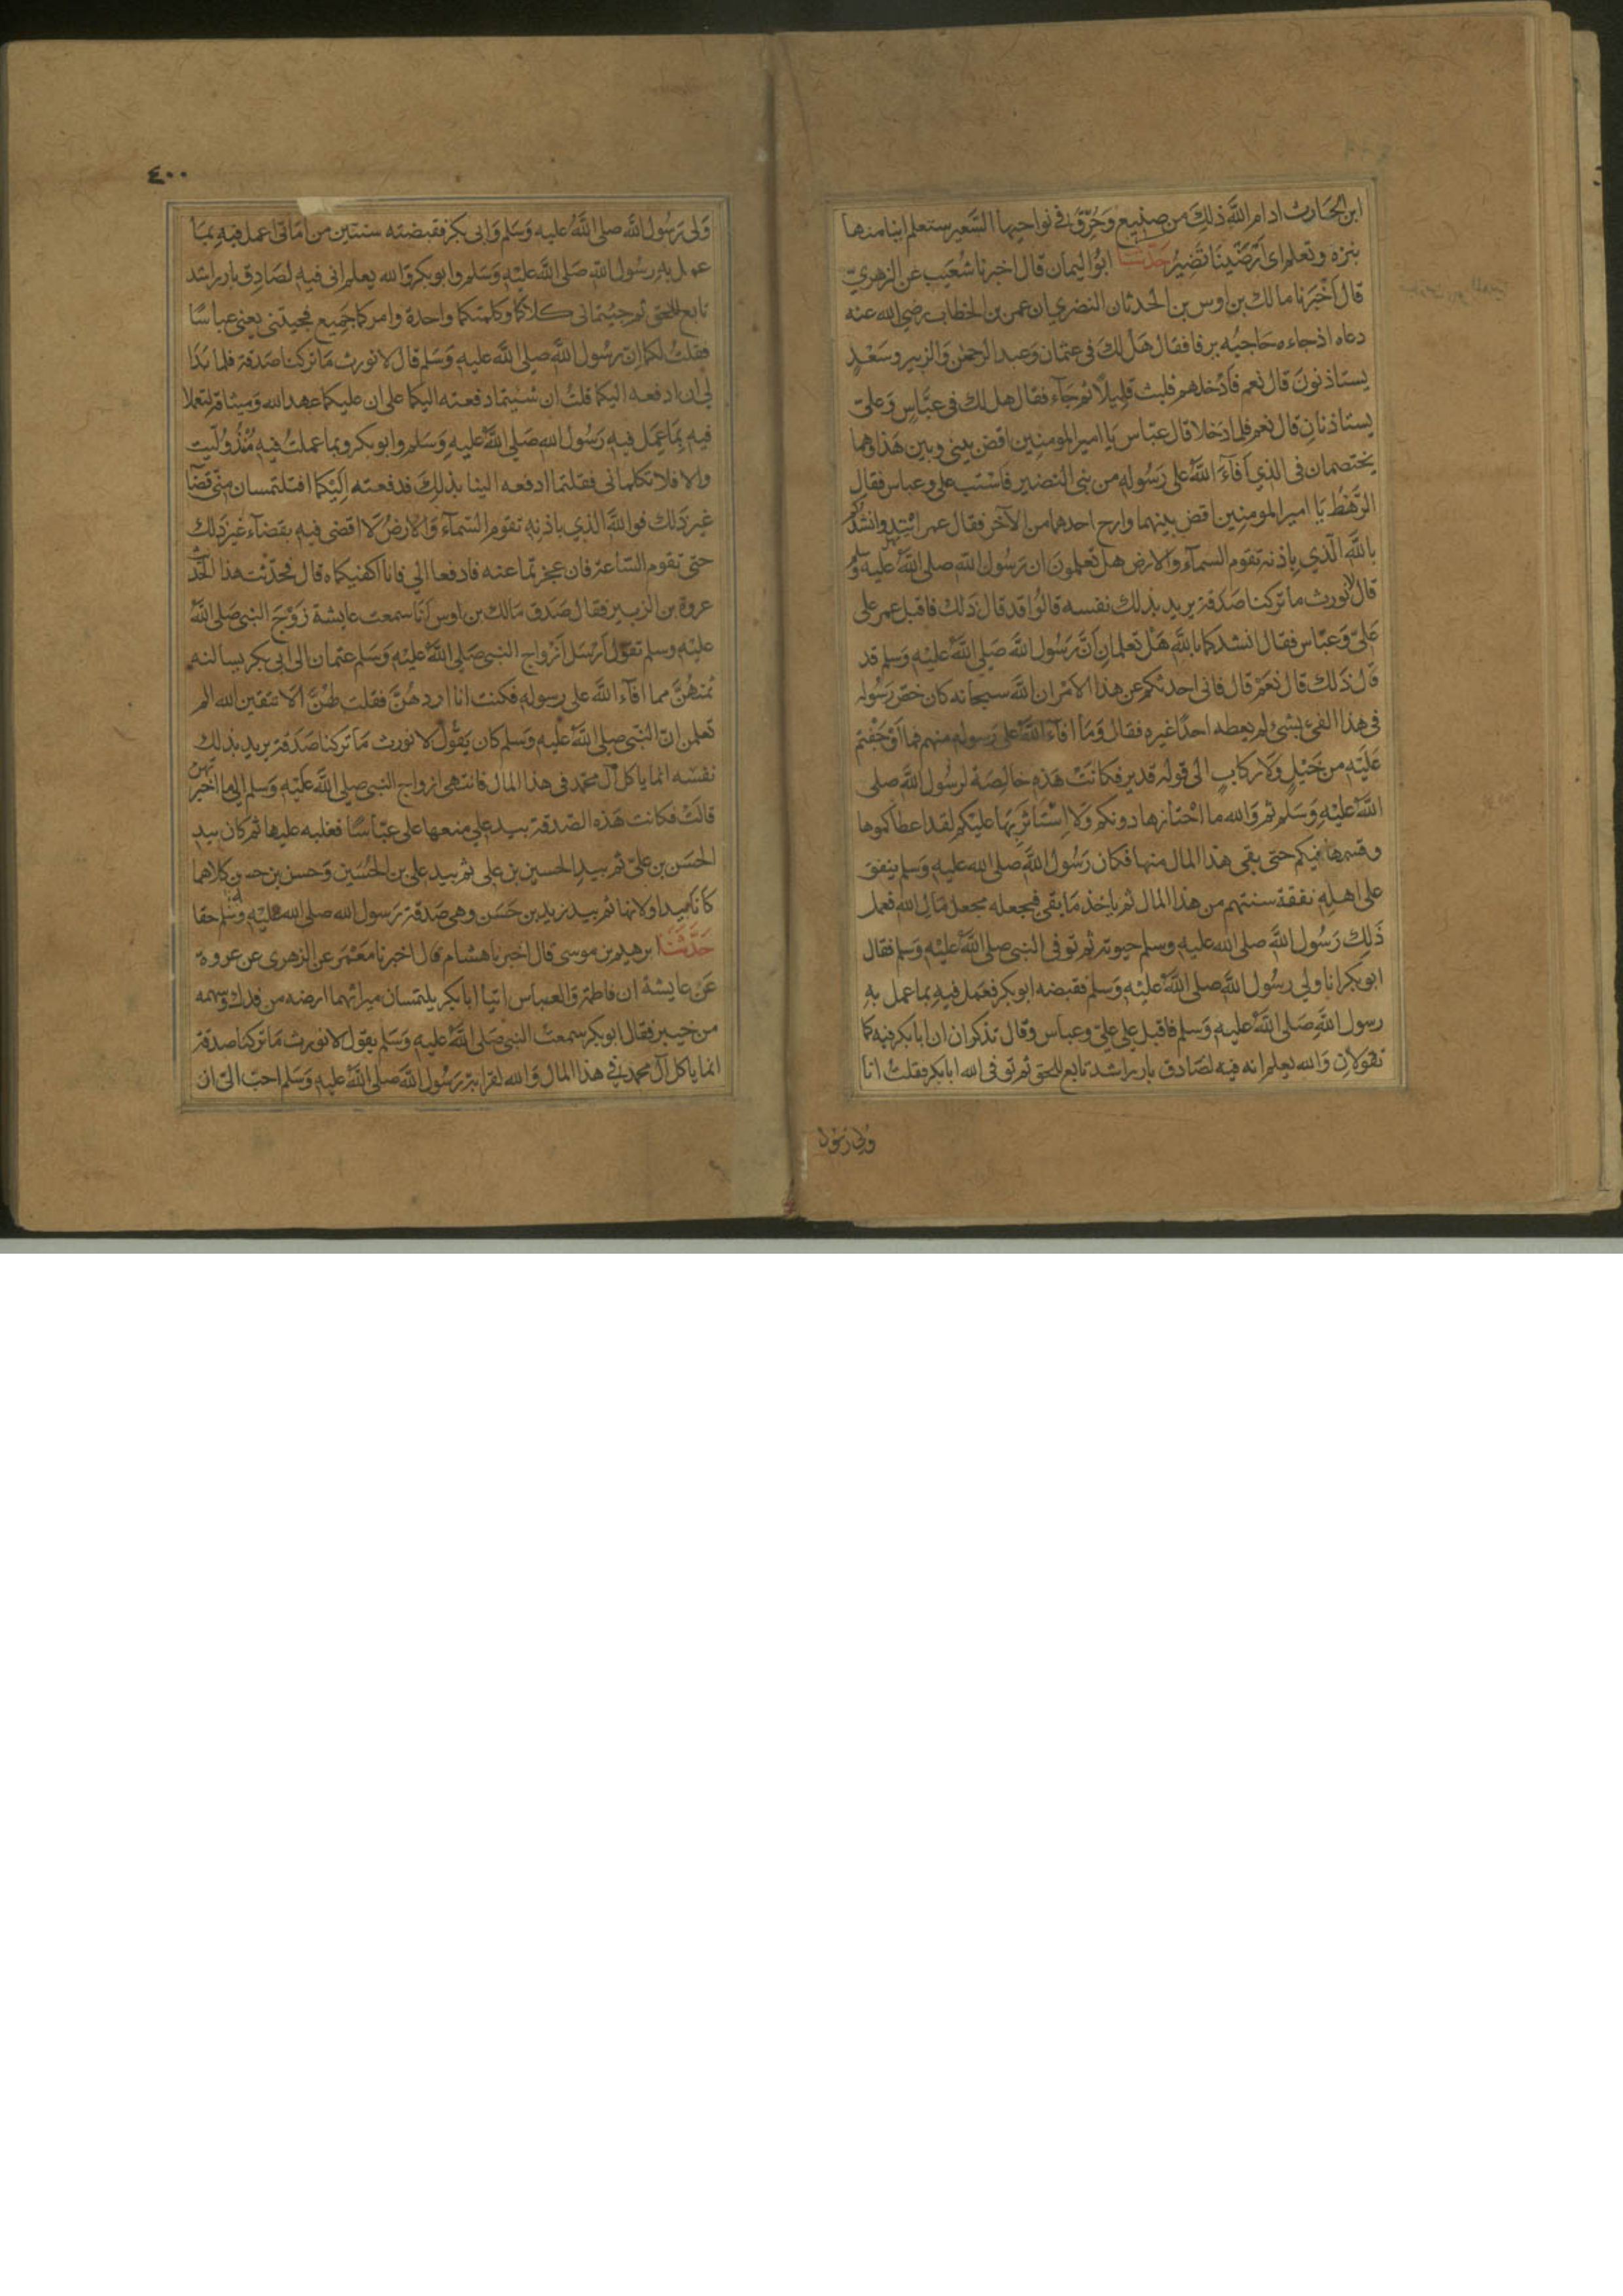 ابن الحارث ادام الله ذلك من صنيع وحرّق في نواحيها السعير ستعلم اينا منها
بنزه وتعلم اى ارضينا تضير حدثنا ابو اليمان قال اخبرنا شعيب عن الزهري
قال اخبرنا مالك بن اوس بن الحدثان النضري ان عمر بن الخطاب رضي الله عنه
دعاه اذ جاءه حاجبه يرفا فقال هل لك في عثمان وعبد الرحمن والزبير وسعد
يستاذنون قال نعم فادخلهم فلبث قليلا ثم جآء فقال هل لك في عباس وعلي
يستاذنان قال نعم فلما دخلا قال عباس يا امير المومنين اقض بيني وبين هذا وهما
يختصمان في الذي افآء الله على رسوله من بني النضير فاستب علي وعباس فقال
الرهط يا امير المومنين اقض بينهما وارح احدهما من الآخر فقال عمر اتئدوا انشدكم
بالله الذي باذنه تقوم السمآء والارض هل تعلمون ان رسول الله صلى الله عليه وسلم
قال لا نورث ما تركنا صدقة يريد بذلك نفسه قالوا قد قال ذلك فاقبل عمر على
علي وعباس فقال انشدكما بالله هل تعلمان ان رسول الله صلى الله عليه وسلم قد
قال ذلك قال نعم قال فاني احدثكم عن هذا الامر ان الله سبحانه كان خص رسوله
في هذا الفئ بشئ لم يعطه احدا غيره فقال وما افآء الله على رسوله منهم فما اوجفتم
عليه من خيل ولا ركاب الى قوله قدير فكانت هذه خالصة لرسول الله صلى
الله عليه وسلم ثم والله ما احتازها دونكم ولا استاثر بها عليكم لقد اعطاكموها
وقسمها فيكم حتى بقي هذا المال منها فكان رسول الله صلى الله عليه وسلم ينفق
على اهله نفقة سنتهم من هذا المال ثم ياخذ ما بقي فيجعله مجعل مال الله فعمل
ذلك رسول الله صلى الله عليه وسلم حيوته ثم توفي النبي صلى الله عليه وسلم فقال
ابو بكر انا ولي رسول الله صلى الله عليه وسلم فقبضه ابو بكر فعمل فيه بما عمل به
رسول الله صلى الله عليه وسلم فاقبل على علي وعباس وقال تذكران ان ابا بكر فيه كما
تقولان والله يعلم انه فيه لصادق بار راشد تابع للحق ثم توفى الله ابا بكر فقلت انا
ولي رسول
٤٠٠
ولي رسول الله صلى الله عليه وسلم وابي بكر فقبضته سنتين من امارتي اعمل فيه بما
عمل به رسول الله صلى الله عليه وسلم وابو بكر والله يعلم اني فيه لصادق بار راشد
تابع للحق ثم جئتماني كلاكما وكلمتكما واحدة وامركما جميع فجيتني يعني عباسا
فقلت لكما ان رسول الله صلى الله عليه وسلم قال لا نورث ما تركنا صدقة فلما بدا
لي ان ادفعه اليكما قلت ان شئتما دفعته اليكما على ان عليكما عهد الله وميثاقه لتعملا
فيه بما عمل فيه رسول الله صلى الله عليه وسلم وابو بكر وبما عملت فيه مذ وليت
والا فلا تكلماني فقلتما ادفعه الينا بذلك فدفعته اليكما افتلتمسان مني قضآ
غير ذلك فوالله الذي باذنه تقوم السمآء والارض لا اقضي فيه بقضآء غير ذلك
حتى تقوم الساعة فان عجزتما عنه فادفعا الي فانا اكفيكماه قال فحدثت هذا الحديث
عروة بن الزبير فقال صدق مالك بن اوس انا سمعت عايشة زوج النبي صلى الله
عليه وسلم تقول ارسل ازواج النبي صلى الله عليه وسلم عثمان الى ابي بكر يسالنه
ثمنهن مما افآء الله على رسوله فكنت انا اردهن فقلت لهن الا تتقين الله الم
تعلمن ان النبي صلى الله عليه وسلم كان يقول لا نورث ما تركنا صدقة يريد بذلك
نفسه انما ياكل آل محمد في هذا المال فانتهى ازواج النبي صلى الله عليه وسلم الى ما اخبرتهن
قالت فكانت هذه الصدقة بيد علي منعها علي عباسا فغلبه عليها ثم كان بيد
الحسن بن علي ثم بيد الحسين بن علي ثم بيد علي بن الحسين وحسن بن حسن كلاهما
كانا يتداولانها ثم بيد زيد بن حسن وهي صدقة رسول الله صلى الله عليه وسلم حقا
حدثنا ابرهيم بن موسى قال اخبرنا هشام قال اخبرنا معمر عن الزهري عن عروة
عن عايشة ان فاطمة والعباس اتيا ابا بكر يلتمسان ميراثهما ارضه من فدك وسهمه
من خيبر فقال ابو بكر سمعت النبي صلى الله عليه وسلم يقول لا نورث ما تركنا صدقة
انما ياكل آل محمد في هذا المال والله لقرابة رسول الله صلى الله عليه وسلم احب الي ان